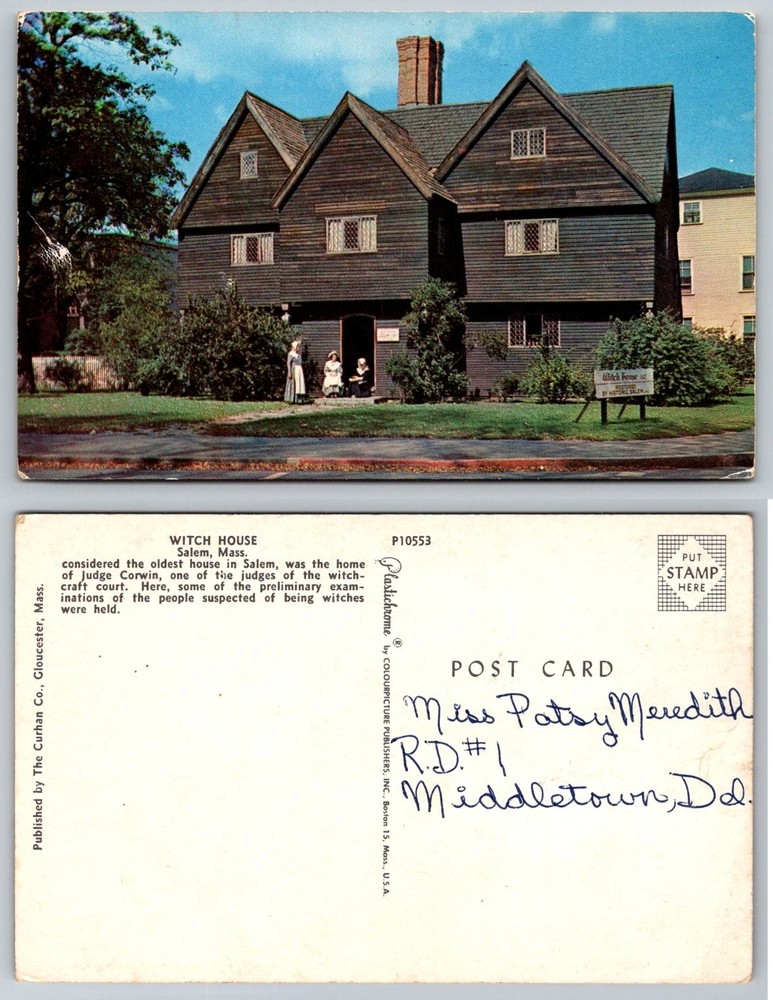 Witch House
WITCH HOUSE
Salem, Mass.
considered the oldest house in Salem, was the home
of Judge Corwin, one of the judges of the witch-
craft court. Here, some of the preliminary exam-
inations of the people suspected of being witches
were held.
Published by The Curhan Co., Gloucester, Mass.
P10553
Plastichrome ® by COLOURPICTURE PUBLISHERS, INC., Boston 15, Mass., U.S.A.
PUT
STAMP
HERE
POST CARD
Miss Patsy Meredith
R.D. #1
Middletown, Del.